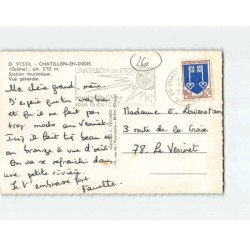 D. 97533. - CHATILLON-EN-DIOIS
(Drôme), alt. 570 m.
Station touristique.
Vue générale.
26
CHATILLON en DIOIS
Ma chère grand-mère,
J'espère que tu vas bien
et qu'il ne fait pas
trop chaud au Vésinet.
Ici, il fait très beau
on bronze à vue d'œil
On va se rafraîchir dans
une petite rivière.
Je t'embrasse fort
Fanette
Madame E.
3 route de la Croix
78. Le Vésinet